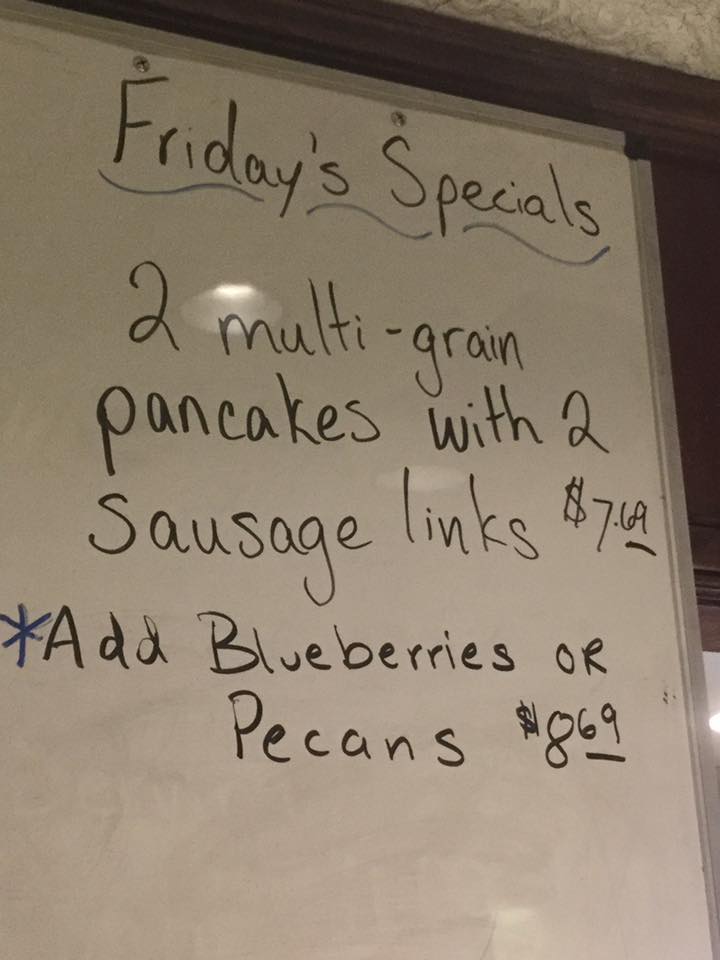 Friday's Specials
2 multi-grain
pancakes with 2
sausage links $7.69
*Add Blueberries OR
Pecans $869